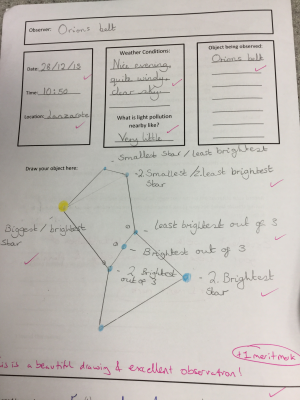 Observer: Orions belt
Date: 28/12/15
Time: 10:50
Location: Lanzarote
Weather Conditions:
Nice evening,
quite windy,
clear sky.
What is light pollution
nearby like?
Very little
Object being observed:
Orions belt
Draw your object here:
Smallest star / least brightest
2 Smallest / 2. least brightest
Star
Biggest / brightest
Star
least brightest out of 3
Brightest out of 3
2. Brightest
out of 3
2. Brightest
Star
+1 merit mark
is is a beautiful drawing & excellent observation!